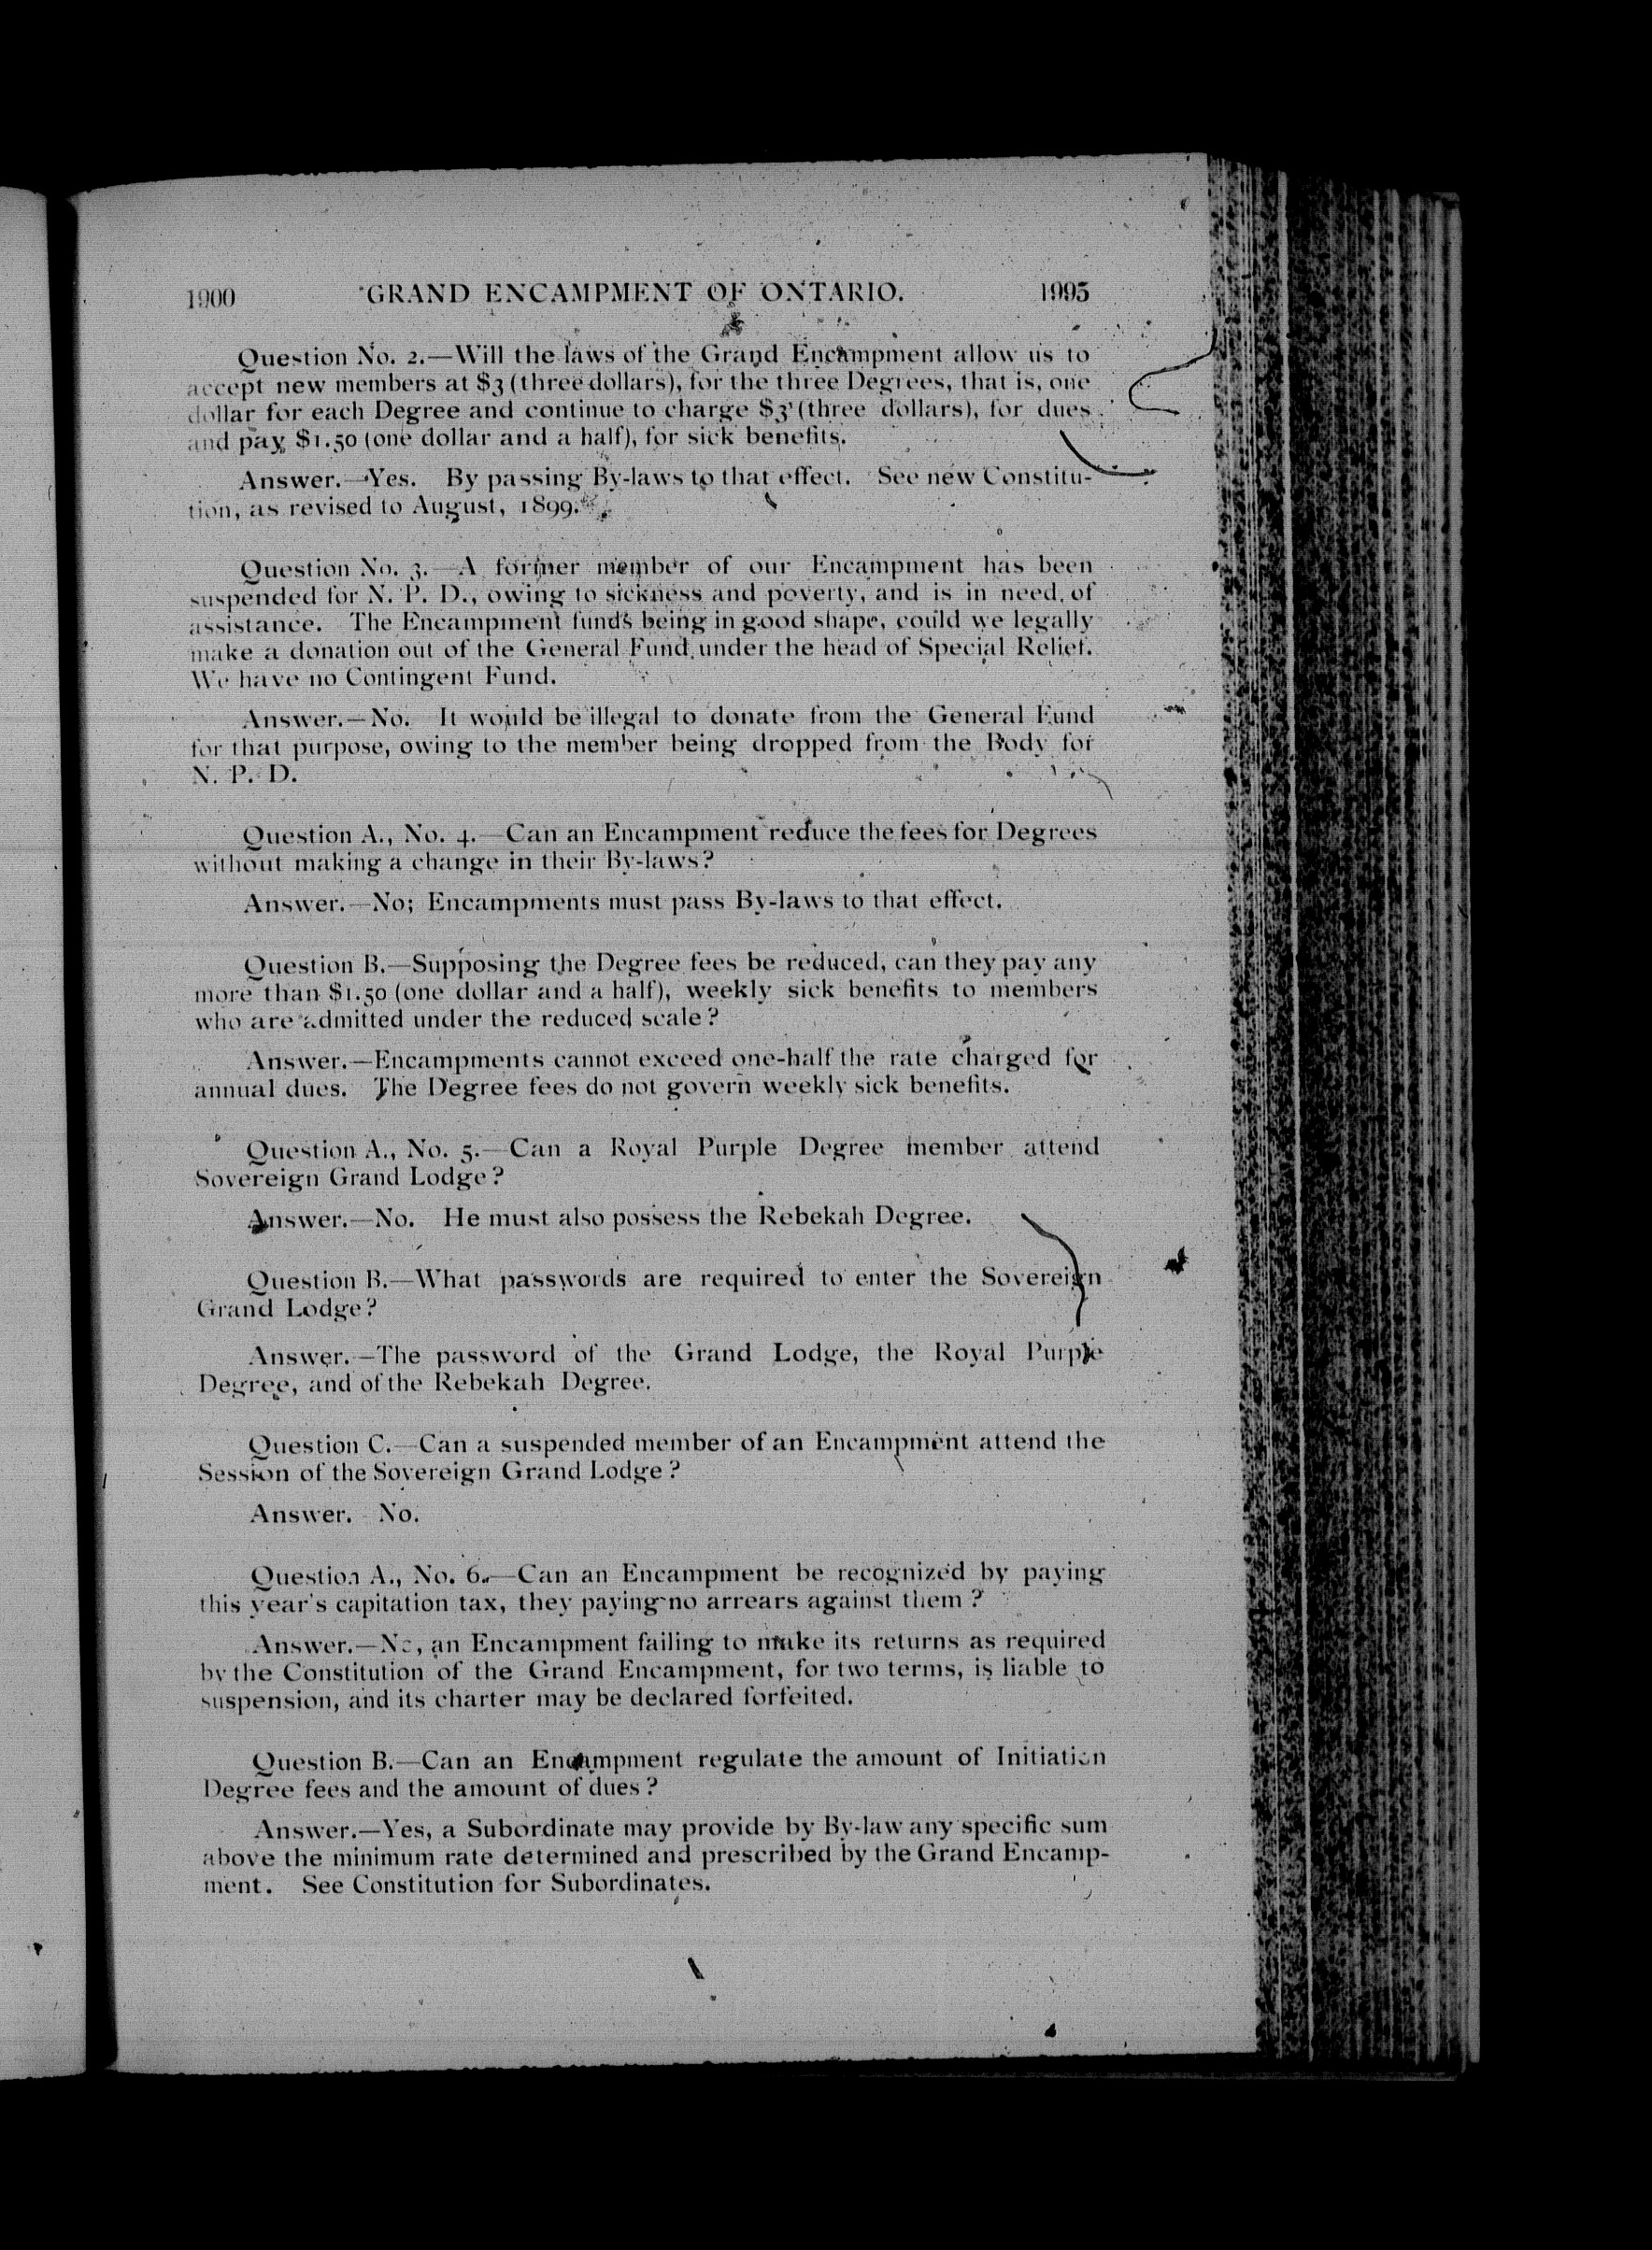 1900 GRAND ENCAMPMENT OF ONTARIO. 1995
Question No. 2.—Will the laws of the Grand Encampment allow us to
accept new members at $3 (three dollars), for the three Degrees, that is, one
dollar for each Degree and continue to charge $3 (three dollars), for dues
and pay $1.50 (one dollar and a half), for sick benefits.
Answer.—Yes. By passing By-laws to that effect. See new Constitu-
tion, as revised to August, 1899.
Question No. 3.—A former member of our Encampment has been
suspended for N. P. D., owing to sickness and poverty, and is in need of
assistance. The Encampment funds being in good shape, could we legally
make a donation out of the General Fund under the head of Special Relief.
We have no Contingent Fund.
Answer.—No. It would be illegal to donate from the General Fund
for that purpose, owing to the member being dropped from the Body for
N. P. D.
Question A., No. 4.—Can an Encampment reduce the fees for Degrees
without making a change in their By-laws?
Answer.—No; Encampments must pass By-laws to that effect.
Question B.—Supposing the Degree fees be reduced, can they pay any
more than $1.50 (one dollar and a half), weekly sick benefits to members
who are admitted under the reduced scale?
Answer.—Encampments cannot exceed one-half the rate charged for
annual dues. The Degree fees do not govern weekly sick benefits.
Question A., No. 5.—Can a Royal Purple Degree member attend
Sovereign Grand Lodge?
Answer.—No. He must also possess the Rebekah Degree.
Question B.—What passwords are required to enter the Sovereign
Grand Lodge?
Answer.—The password of the Grand Lodge, the Royal Purple
Degree, and of the Rebekah Degree.
Question C.—Can a suspended member of an Encampment attend the
Session of the Sovereign Grand Lodge?
Answer. No.
Question A., No. 6.—Can an Encampment be recognized by paying
this year's capitation tax, they paying no arrears against them?
Answer.—No, an Encampment failing to make its returns as required
by the Constitution of the Grand Encampment, for two terms, is liable to
suspension, and its charter may be declared forfeited.
Question B.—Can an Encampment regulate the amount of Initiation
Degree fees and the amount of dues?
Answer.—Yes, a Subordinate may provide by By-law any specific sum
above the minimum rate determined and prescribed by the Grand Encamp-
ment. See Constitution for Subordinates.